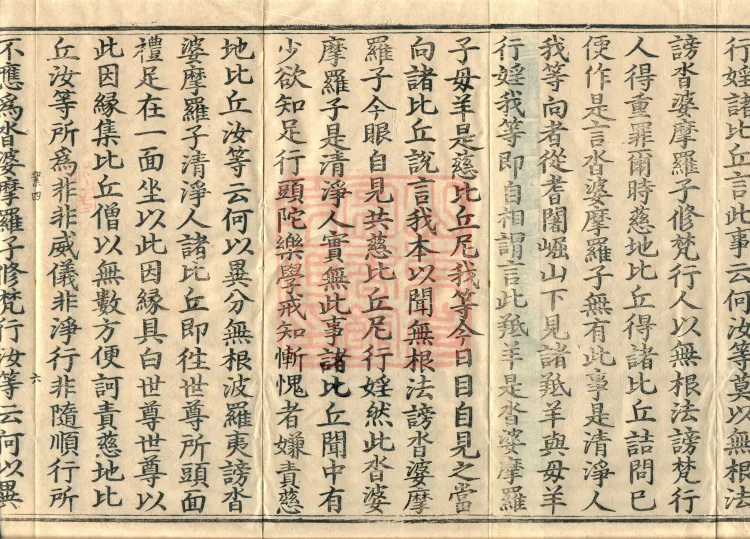 行婬諸比丘言此事云何汝等莫以無根法
謗沓婆摩羅子修梵行人以無根法謗梵行
人得重罪爾時慈地比丘得諸比丘詰問已
便作是言沓婆摩羅子無有此事是清淨人
我等向者從耆闍崛山下見諸羝羊與母羊
行婬我等即自相謂言此羝羊是沓婆摩羅
子母羊是慈比丘尼我等今日目自見之當
向諸比丘說言我本以聞無根法謗沓婆摩
羅子今眼自見共慈比丘尼行婬然此沓婆
摩羅子是清淨人實無此事諸比丘聞中有
少欲知足行頭陀樂學戒知慚愧者嫌責慈
地比丘汝等云何以異分無根波羅夷謗沓
婆摩羅子清淨人諸比丘即徃世尊所頭面
禮足在一面坐以此因緣具白世尊世尊以
此因緣集比丘僧以無數方便訶責慈地比
丘汝等所為非非威儀非淨行非隨順行所
不應為沓婆摩羅子修梵行汝等云何以異
業四
六